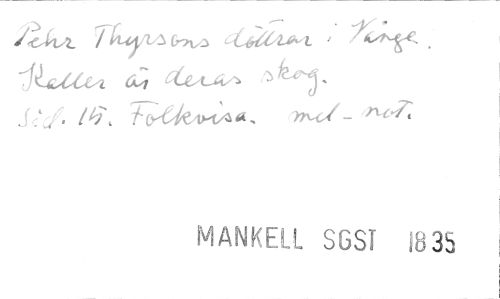 Pehr Thyrsons döttrar i Vänge.
Kaller är deras skog.
Sid. 15. Folkvisa. mel-not.
MANKELL SGST 1835